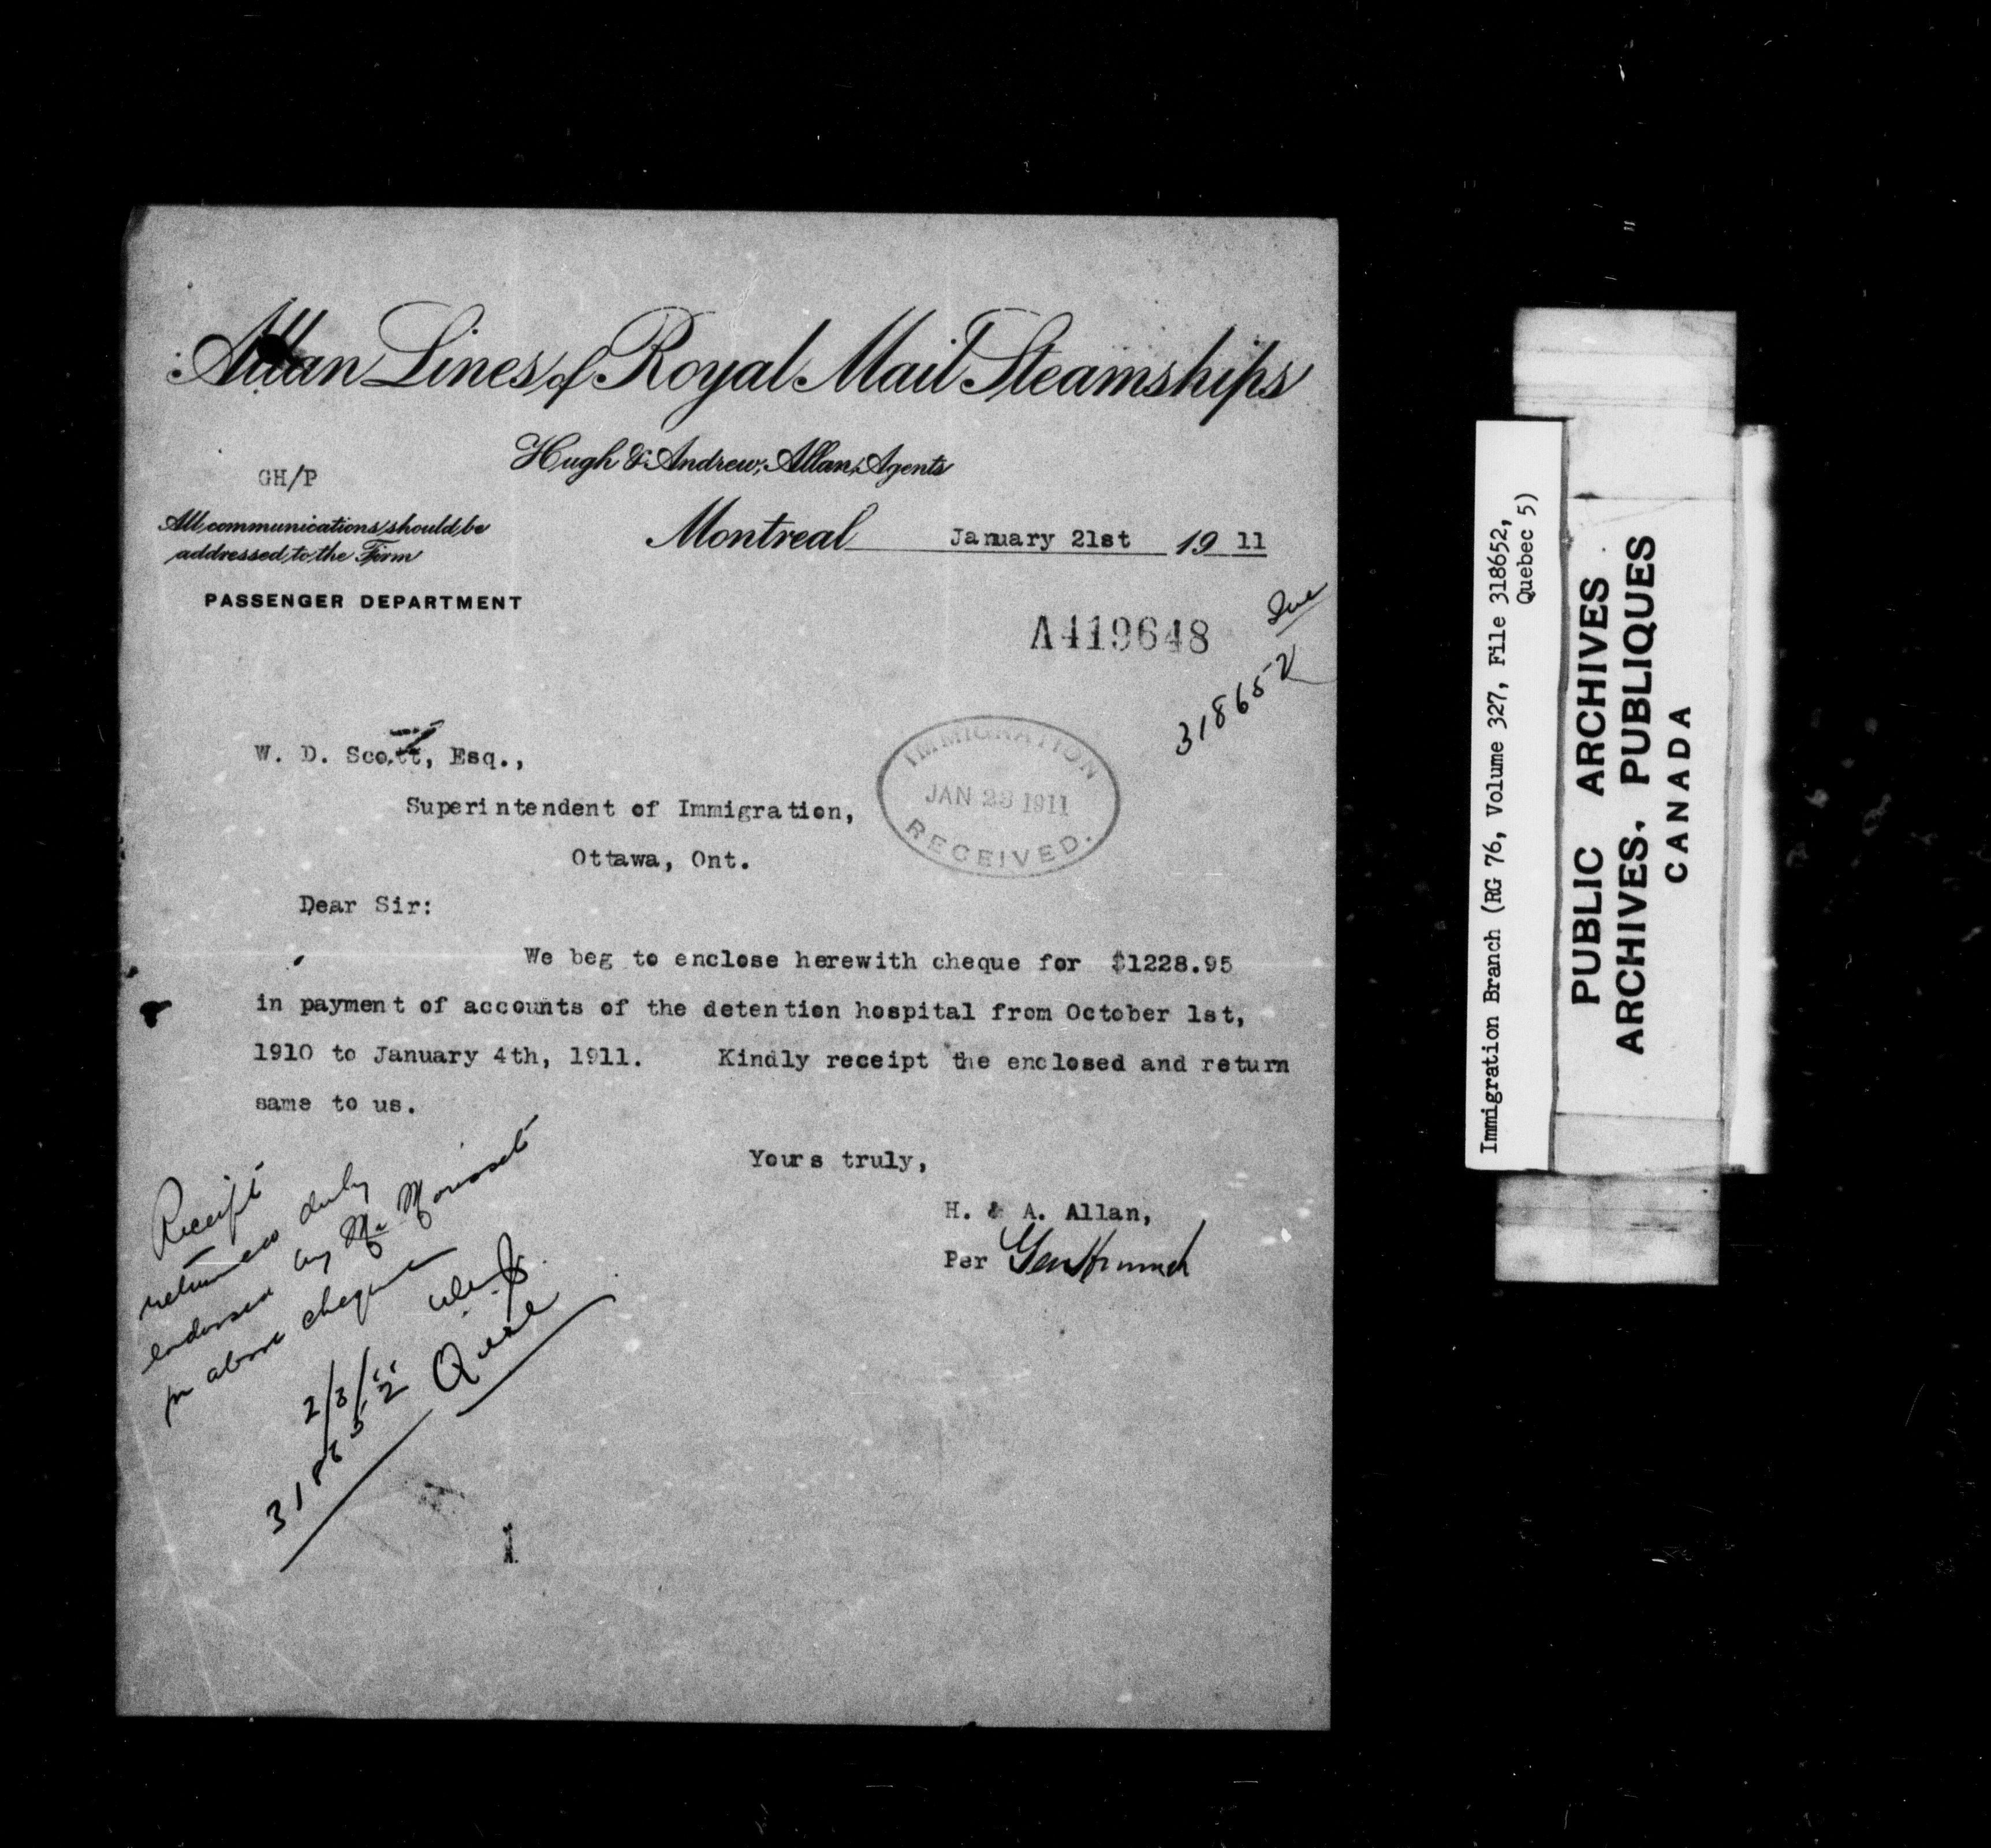 Allan Lines of Royal Mail Steamships
Hugh & Andrew Allan, Agents
GH/P
All communications should be
addressed to the Firm
Montreal January 21st 19 11
PASSENGER DEPARTMENT
A419648
318652
W. D. Scott, Esq.,
Superintendent of Immigration,
Ottawa, Ont.
IMMIGRATION
JAN 23 1911
RECEIVED.
Dear Sir:
We beg to enclose herewith cheque for $1228.95
in payment of accounts of the detention hospital from October 1st,
1910 to January 4th, 1911. Kindly receipt the enclosed and return
same to us.
Yours truly,
H. & A. Allan,
Per
Receipt
returned duly
endorsed by Mr
for above cheque
2/3/
318652
1
Immigration Branch (RG 76, Volume 327, File 318652,
Quebec 5)
PUBLIC ARCHIVES
ARCHIVES. PUBLIQUES
CANADA